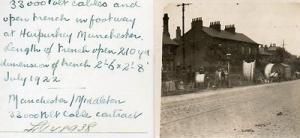 33000 Volt cables and
open trench in footway
at Harpurhey Manchester.
Length of trench open 210 yds
dimension of trench 2'-6" x 2'-8"
July 1922
Manchester/Middleton
33000 Volt Cable contract
1938